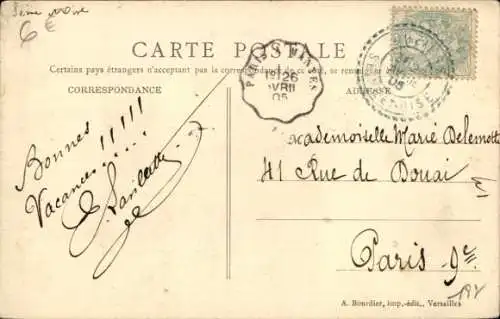 6€
CARTE POSTALE
Certains pays étrangers n'acceptent pas la correspondance de ce côté, se renseigner
CORRESPONDANCE
ADRESSE
PARIS A MANTES
26
AVRIL
05
Bonnes
Vacances!!!!!
Mademoiselle Marie Delemotte
41 Rue de Douai
Paris 9e
A. Bourdier, imp.-édit., Versailles